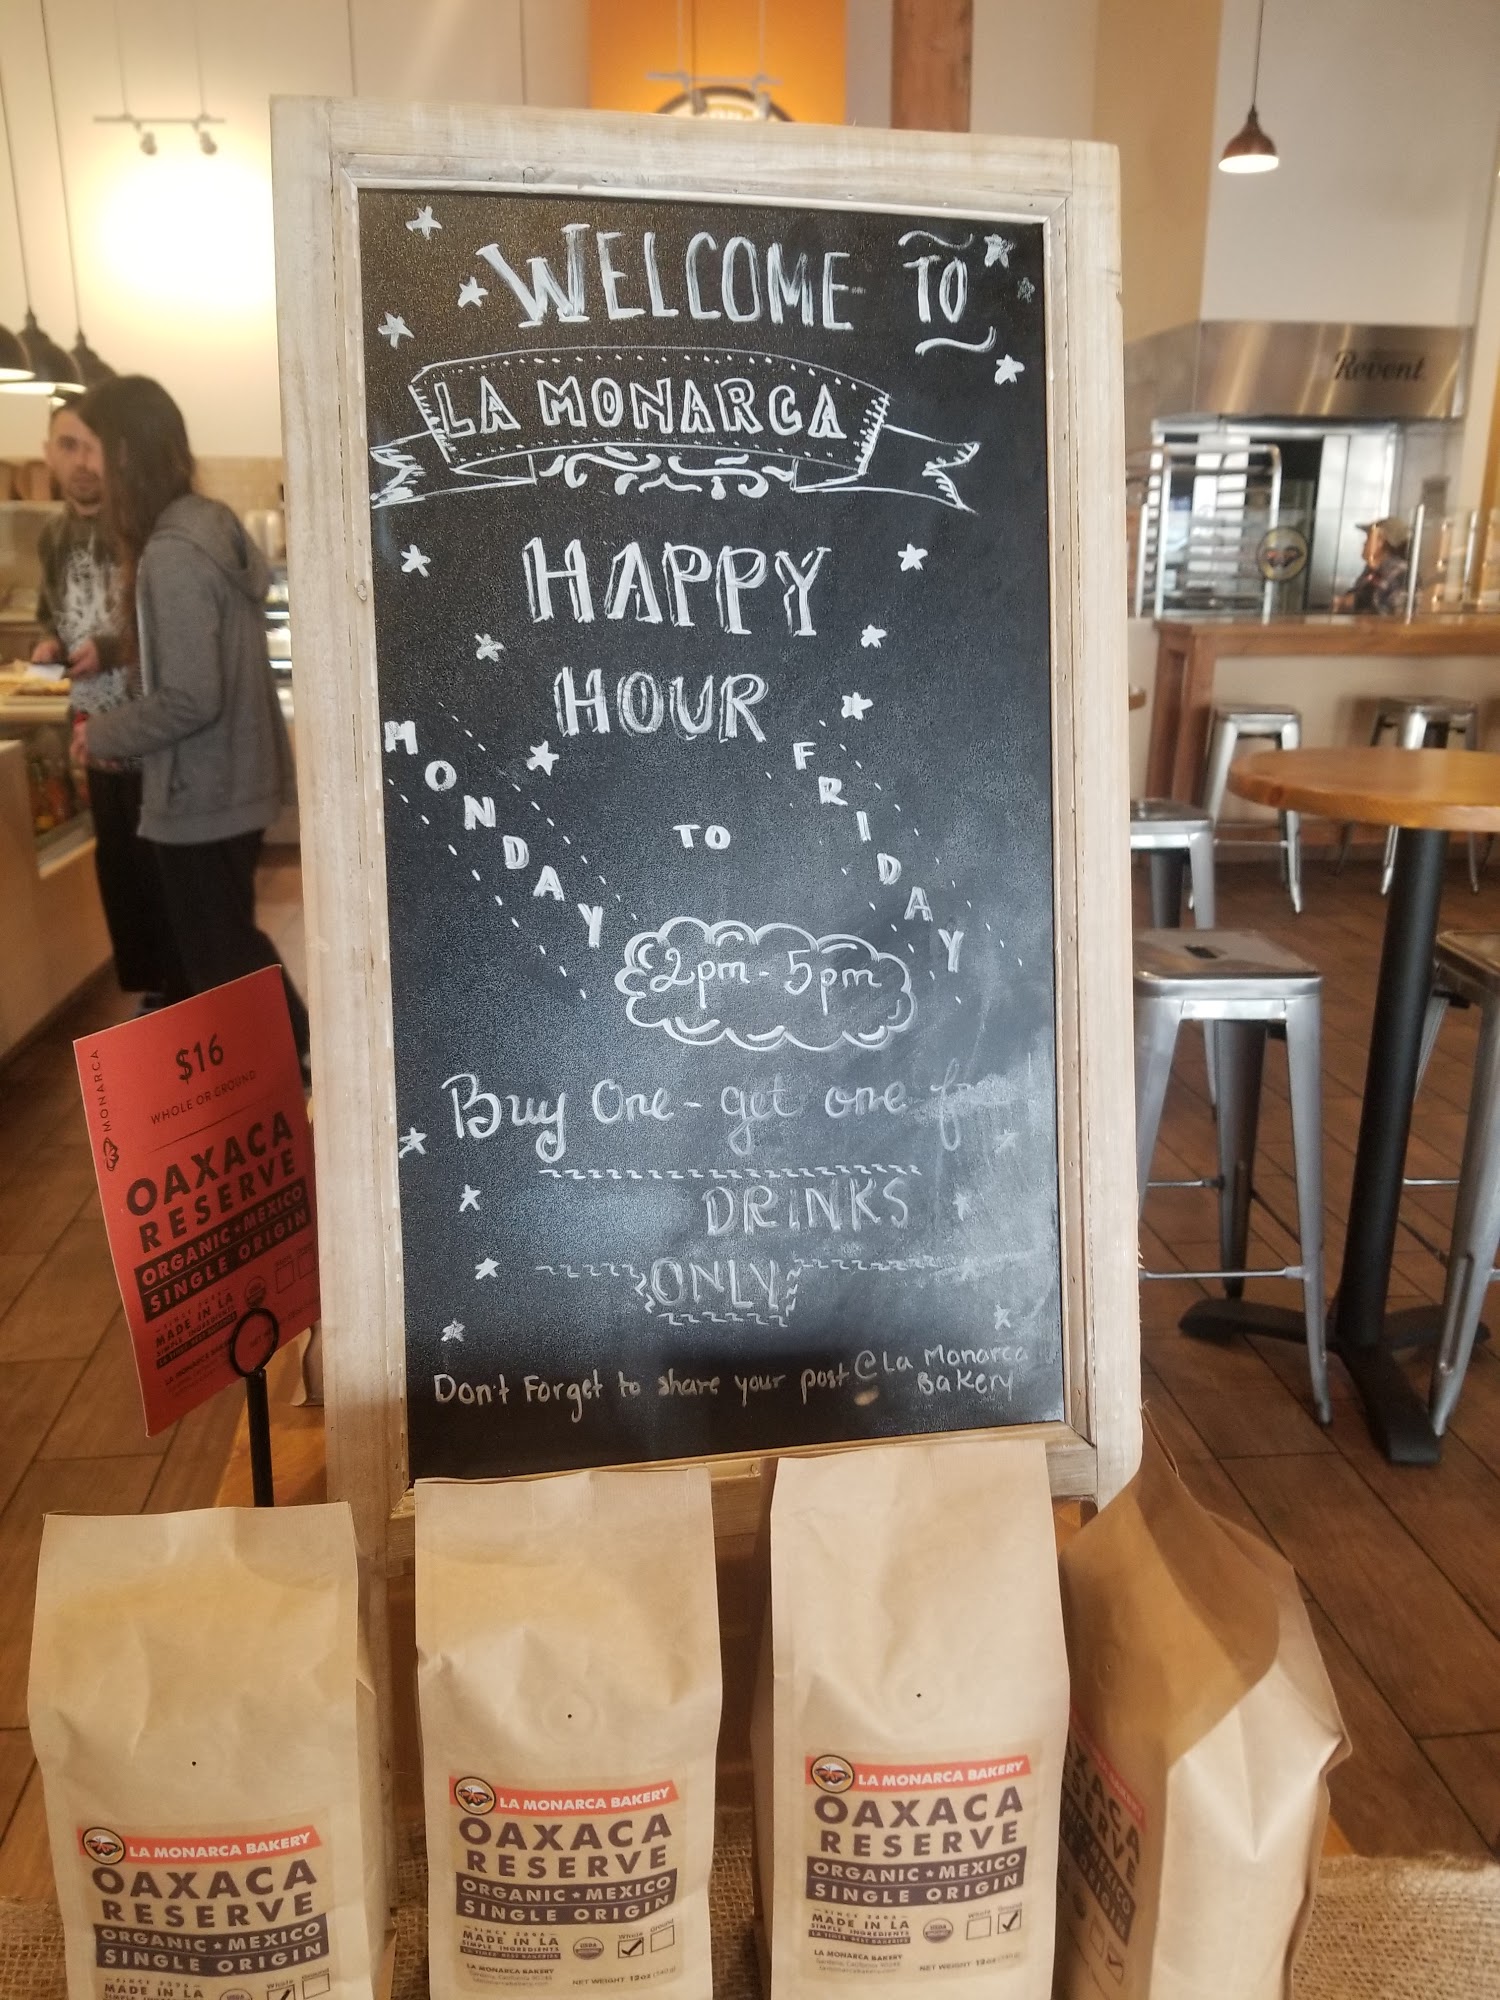 Revent
WELCOME TO
LA MONARCA
HAPPY
HOUR
MONDAY
TO
FRIDAY
2pm - 5pm
Buy One - get one free
DRINKS
ONLY
Don't Forget to share your post @La Monarca
Bakery
MONARCA
$16
WHOLE OR GROUND
OAXACA
RESERVE
ORGANIC ★ MEXICO
SINGLE ORIGIN
MADE IN LA
SIMPLE INGREDIENTS
LA MONARCA BAKERY
OAXACA
RESERVE
ORGANIC ★ MEXICO
SINGLE ORIGIN
MADE IN LA
Whole
LA MONARCA BAKERY
OAXACA
RESERVE
ORGANIC ★ MEXICO
SINGLE ORIGIN
SINCE 2006
MADE IN LA
SIMPLE INGREDIENTS
USDA
Whole
Ground
LA MONARCA BAKERY
NET WEIGHT 12oz (340g)
LA MONARCA BAKERY
OAXACA
RESERVE
ORGANIC ★ MEXICO
SINGLE ORIGIN
SINCE 2006
MADE IN LA
SIMPLE INGREDIENTS
USDA
Whole
Ground
LA MONARCA BAKERY
NET WEIGHT 12oz (340g)